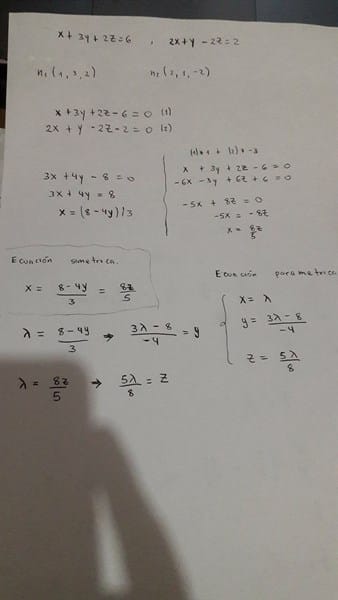 x + 3y + 2z = 6 , 2x + y - 2z = 2
n₁ (1, 3, 2) n₂ (2, 1, -2)
x + 3y + 2z - 6 = 0 (1)
2x + y - 2z - 2 = 0 (2)
3x + 4y - 8 = 0
3x + 4y = 8
x = (8 - 4y) / 3
(1) * 1 + (2) * -3
x + 3y + 2z - 6 = 0
-6x - 3y + 6z + 6 = 0
-5x + 8z = 0
-5x = -8z
x = 8z/5
Ecuación simetrica.
x = (8 - 4y)/3 = 8z/5
λ = (8 - 4y)/3 → (3λ - 8)/-4 = y
λ = 8z/5 → 5λ/8 = z
Ecuación parametrica
x = λ
y = (3λ - 8)/-4
z = 5λ/8